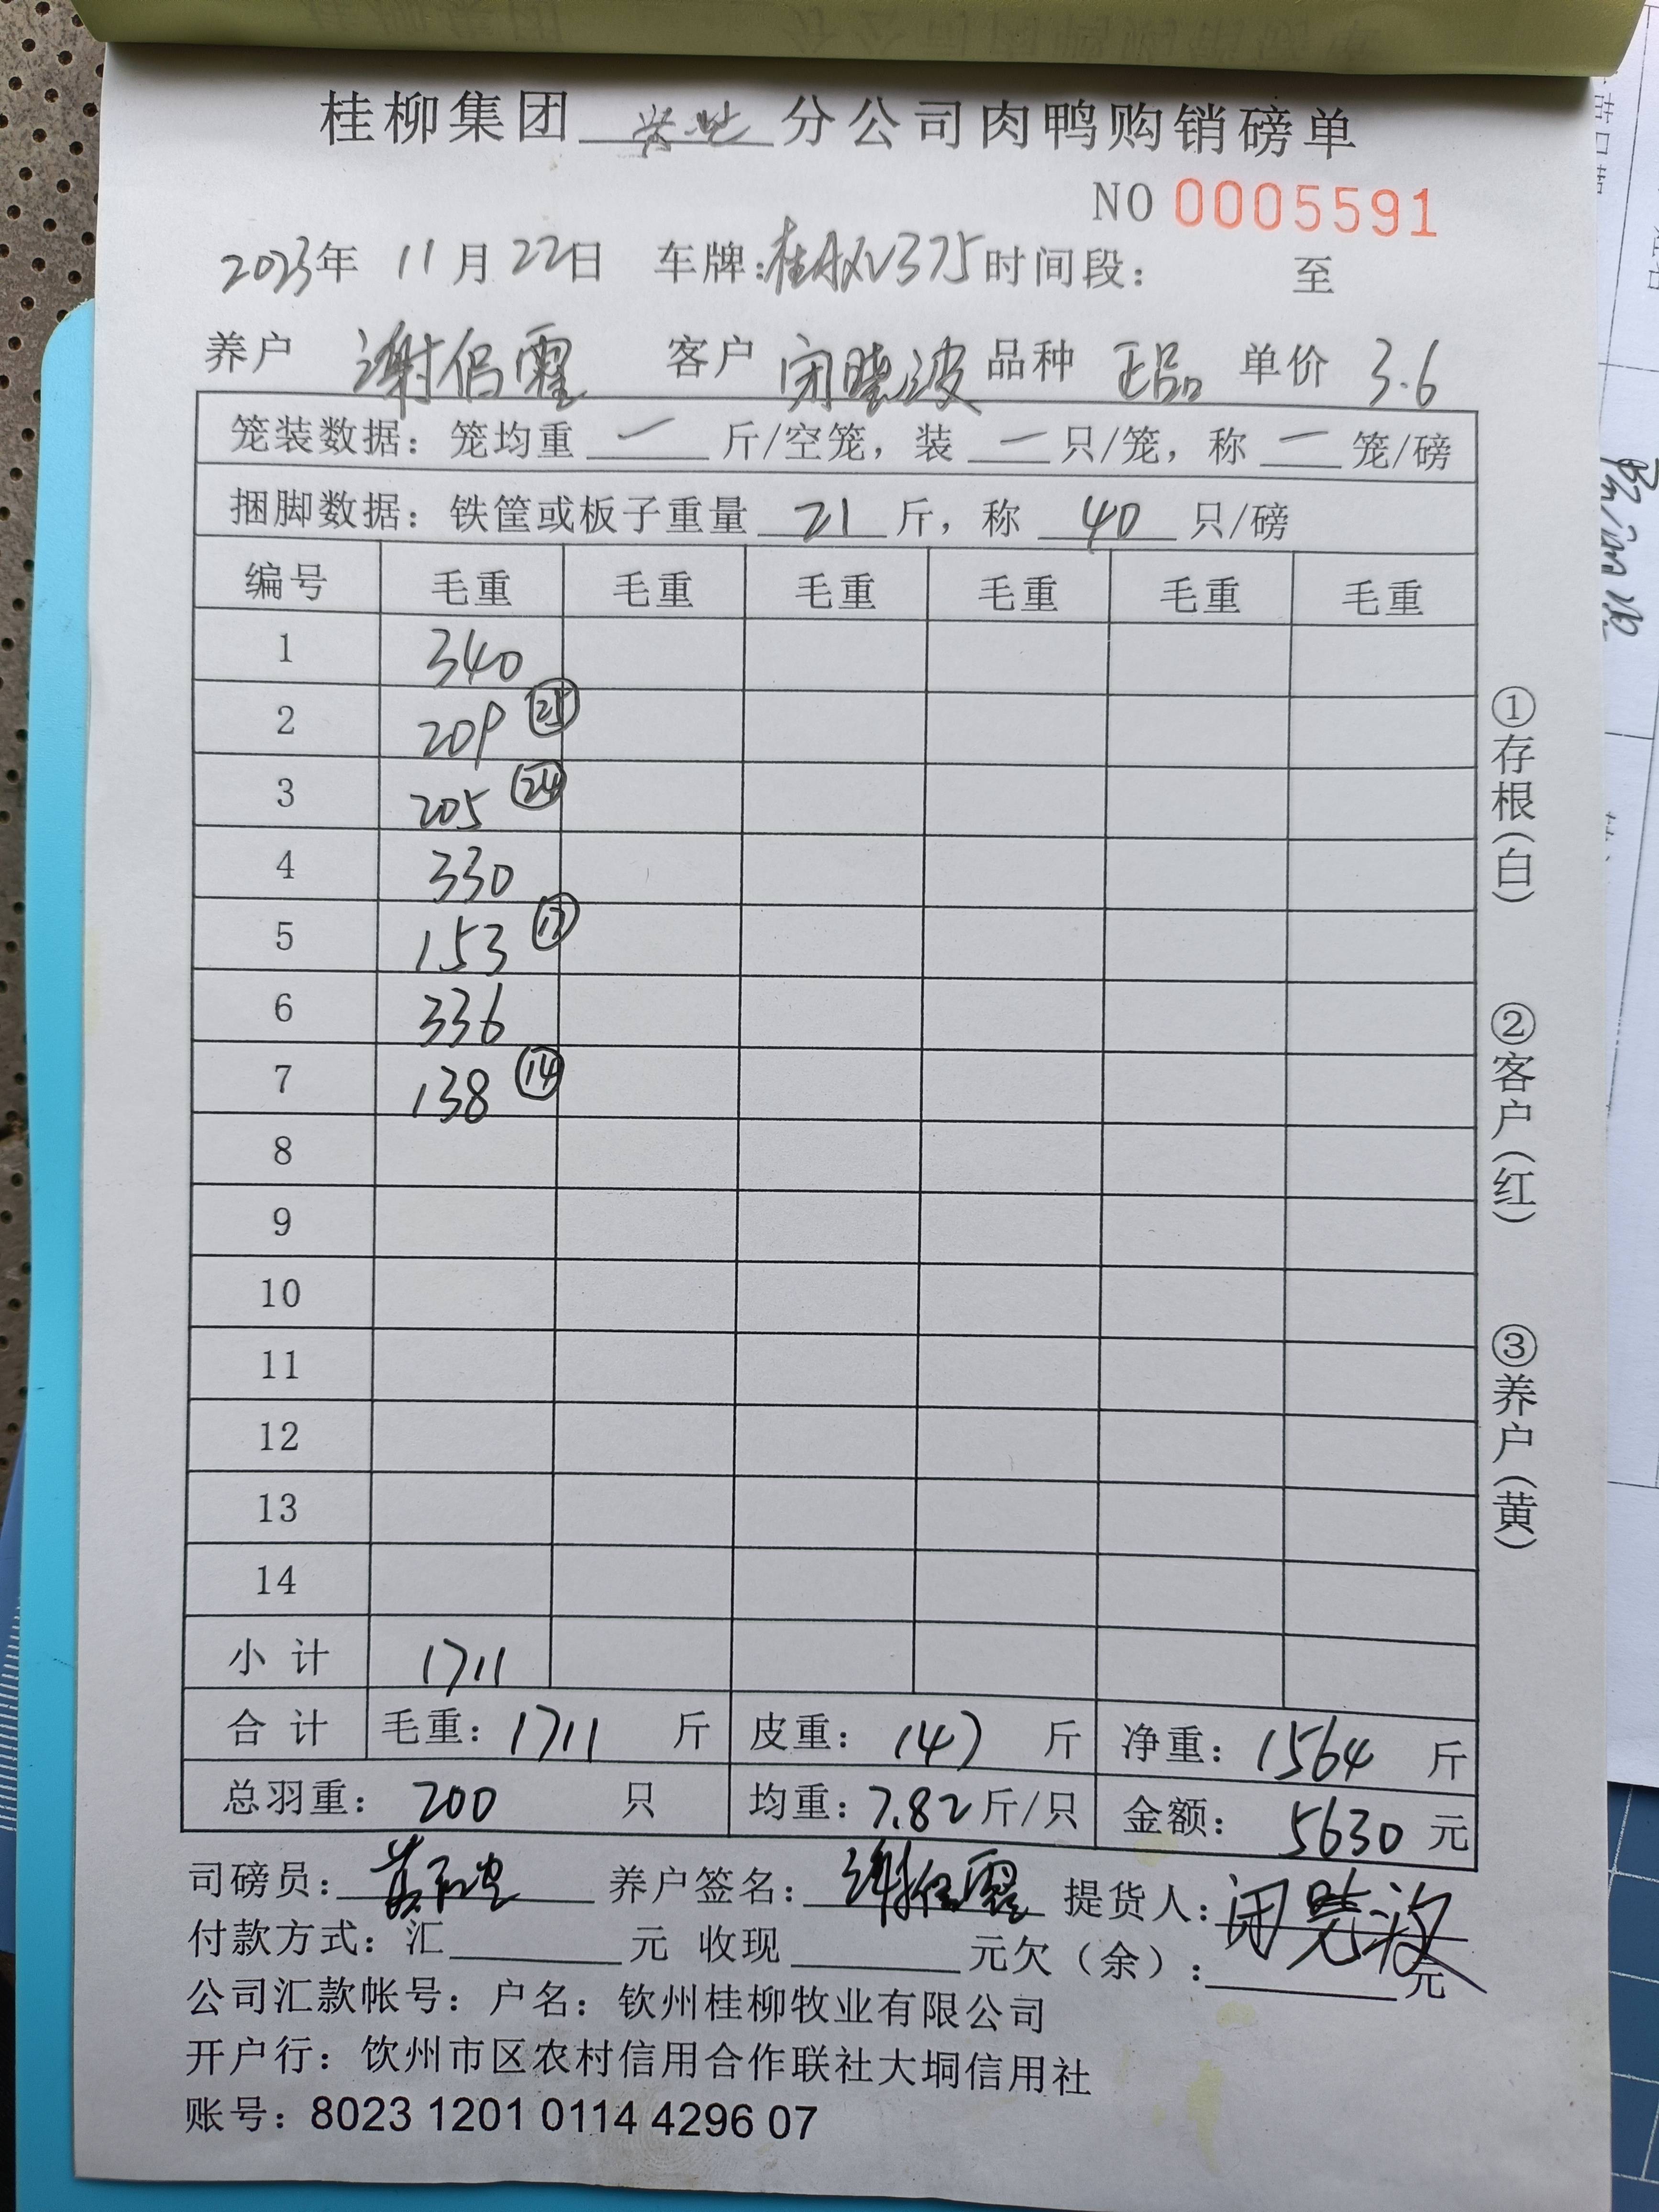 桂柳集团 分公司肉鸭购销磅单
NO 0005591
2023年 11月22日 车牌:桂 375时间段: 至
养户 谢侣霞 客户 闭晓波 品种 正品 单价 3.6
笼装数据: 笼均重 一 斤/空笼, 装 一 只/笼, 称 一 笼/磅
捆脚数据: 铁筐或板子重量 21 斤, 称 40 只/磅
编号 毛重 毛重 毛重 毛重 毛重 毛重
1 340
2 209 25
3 205 24
4 330
5 153 17
6 336
7 138 14
8
9
10
11
12
13
14
小计 1711
合计 毛重: 1711 斤 皮重: 147 斤 净重: 1564 斤
总羽重: 200 只 均重: 7.82 斤/只 金额: 5630 元
司磅员: 养户签名: 谢侣霞 提货人: 闭晓波
付款方式: 汇 元 收现 元欠(余): 元
公司汇款帐号: 户名: 钦州桂柳牧业有限公司
开户行: 钦州市区农村信用合作联社大垌信用社
账号: 8023 1201 0114 4296 07
①存根(白)
②客户(红)
③养户(黄)